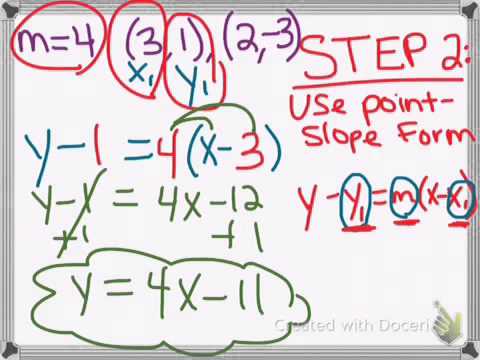 m=4 (3,1), (2,-3)
x₁ y₁
STEP 2:
Use point-
Slope Form
y - y₁ = m(x-x₁)
y - 1 = 4(x-3)
y - 1 = 4x - 12
+1 +1
y = 4x - 11
Created with Doceri